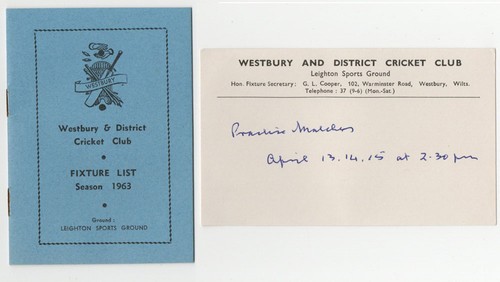 WESTBURY
Westbury & District
Cricket Club
FIXTURE LIST
Season 1963
Ground :
LEIGHTON SPORTS GROUND
WESTBURY AND DISTRICT CRICKET CLUB
Leighton Sports Ground
Hon. Fixture Secretary: G. L. Cooper, 102, Warminster Road, Westbury, Wilts.
Telephone : 37 (9-6) (Mon.-Sat.)
Practise Matches
April 13.14.15 at 2-30 pm